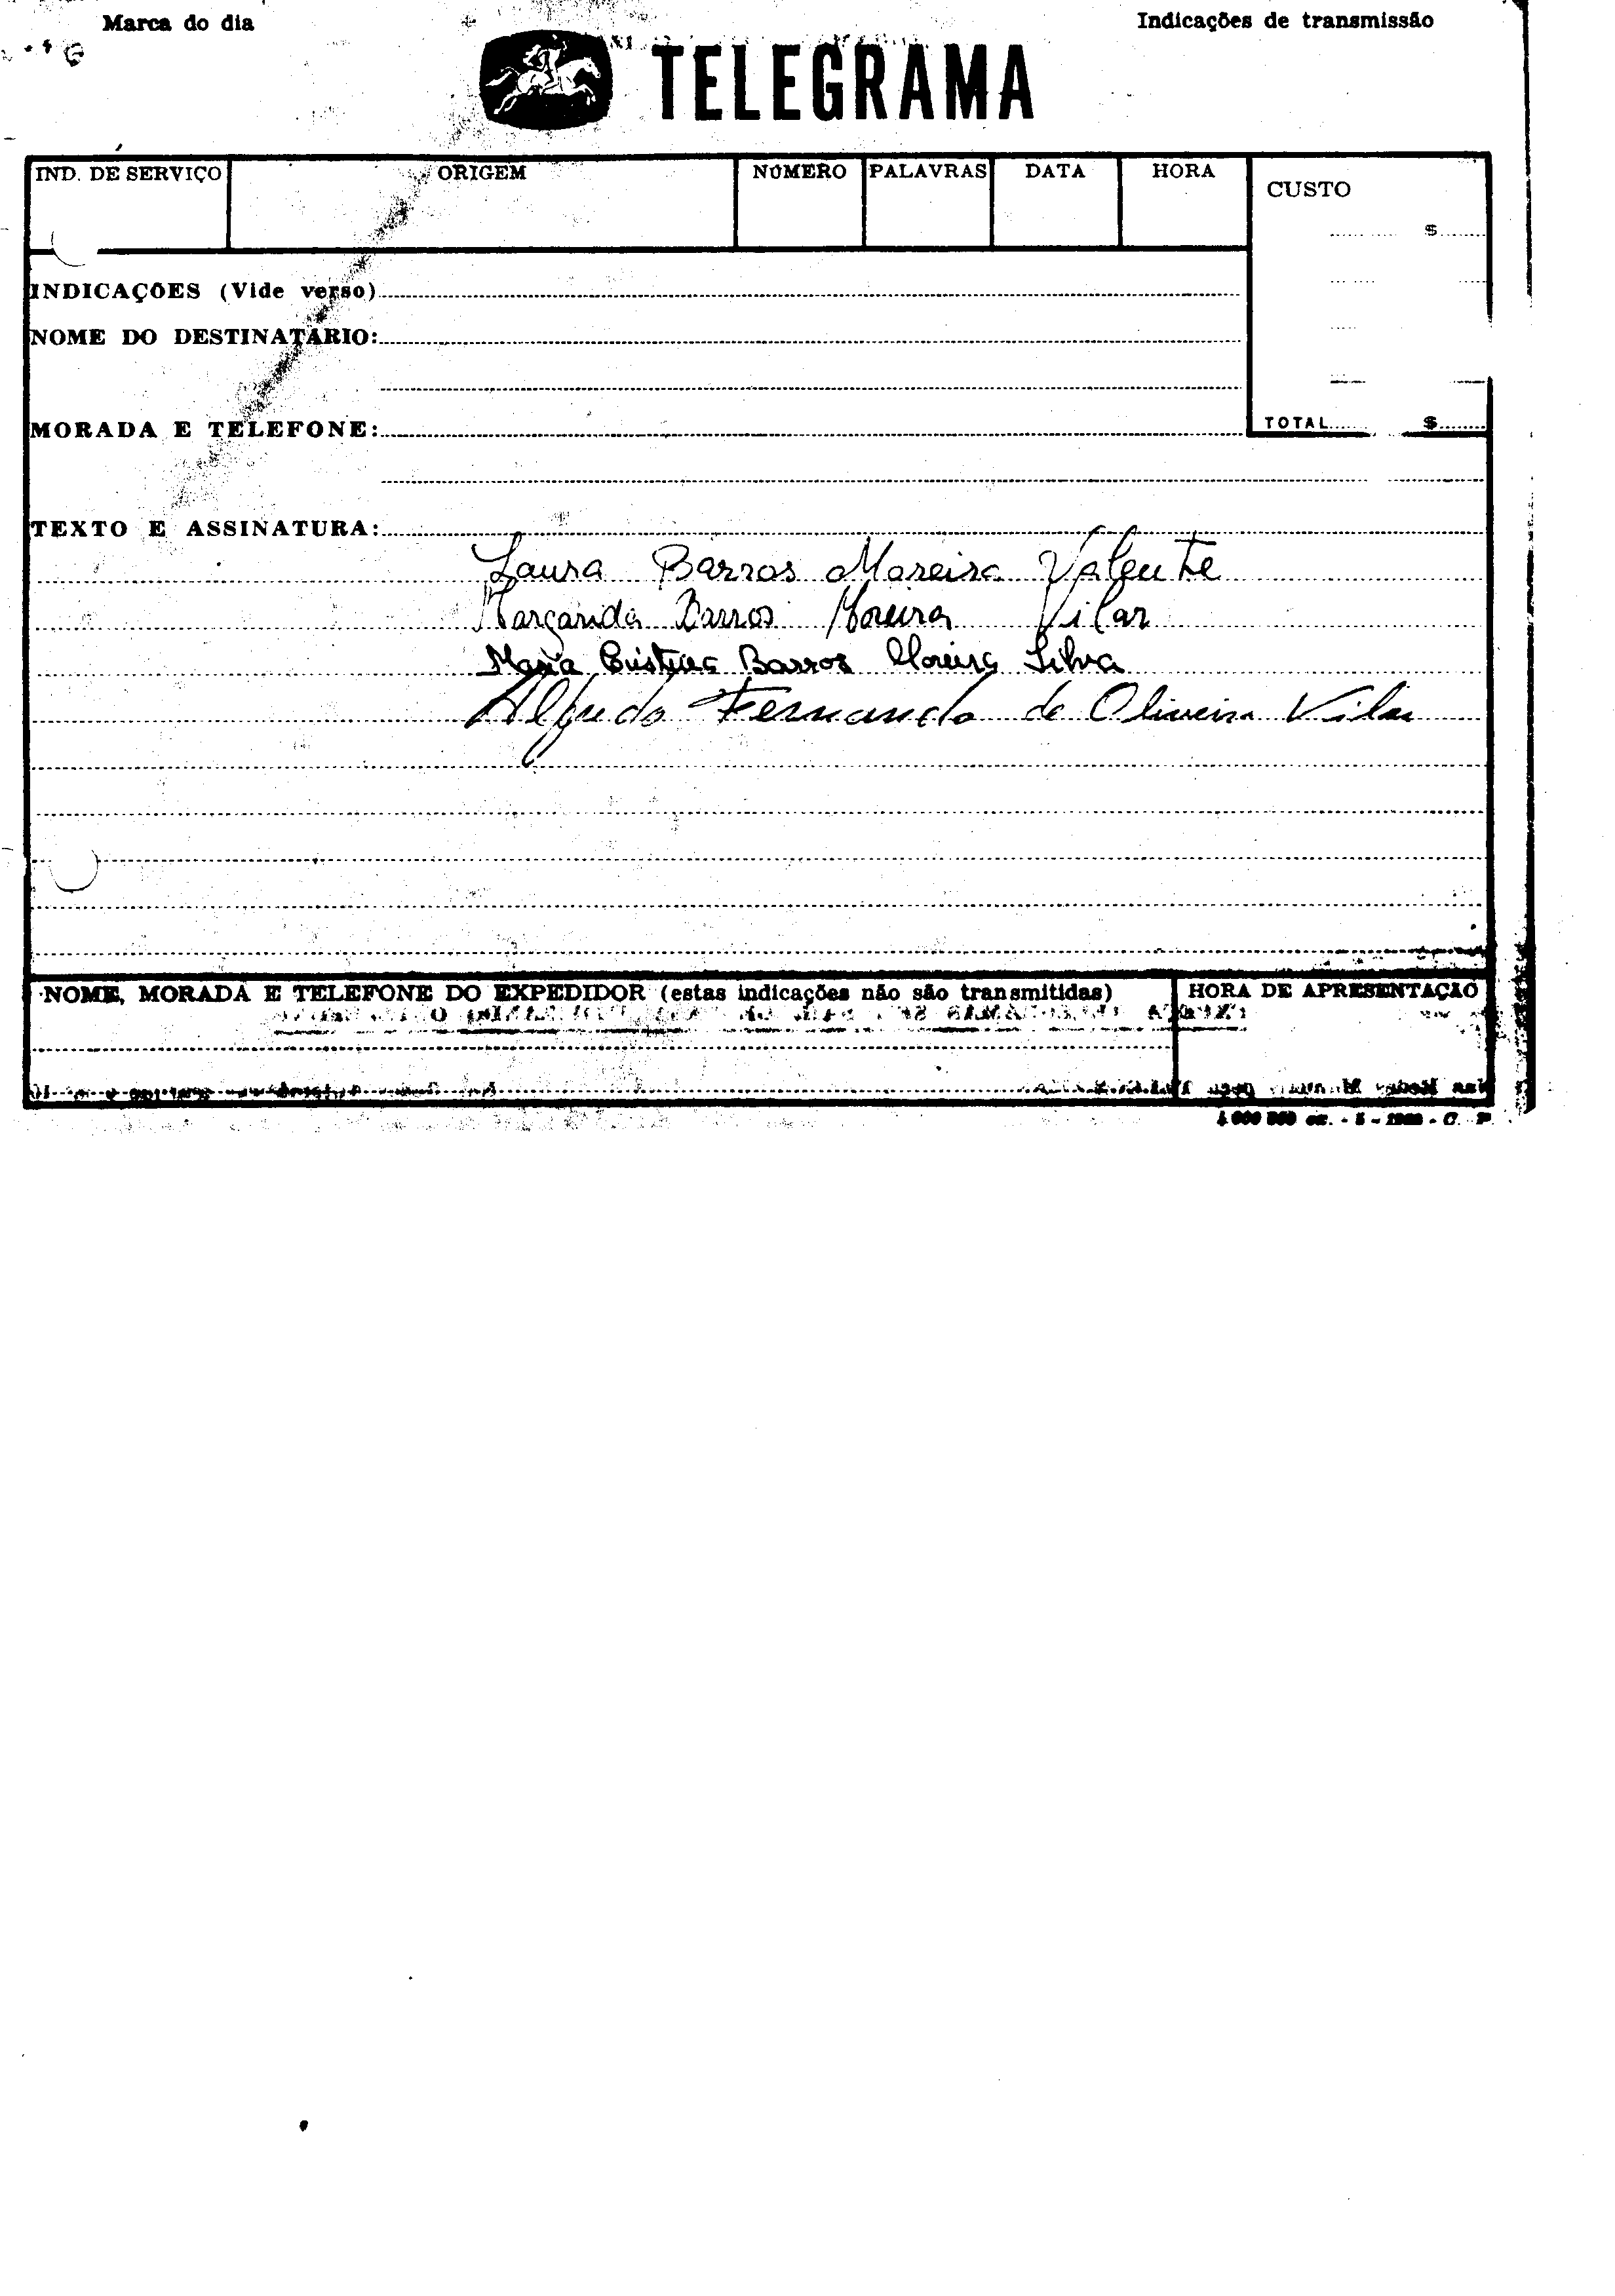 Marca do dia
Indicações de transmissão
TELEGRAMA
IND. DE SERVIÇO ORIGEM NÚMERO PALAVRAS DATA HORA CUSTO
$
INDICAÇÕES (Vide verso)
NOME DO DESTINATÁRIO:
MORADA E TELEFONE:
TOTAL $
TEXTO E ASSINATURA:
Laura Barros Moreira Valente
Margarida Barros Moreira Vilar
Maria Cristina Barros Moreira Silva
Alfredo Fernando de Oliveira Vilar
NOME, MORADA E TELEFONE DO EXPEDIDOR (estas indicações não são transmitidas) HORA DE APRESENTAÇÃO